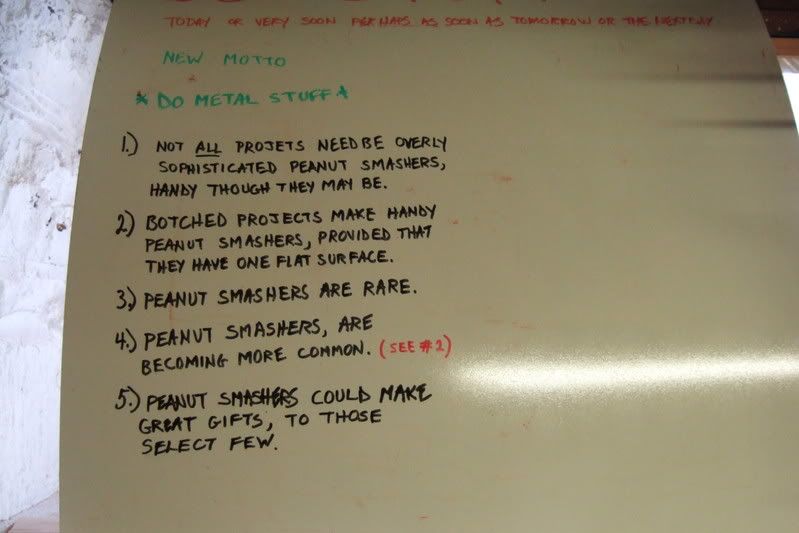 TODAY OR VERY SOON PERHAPS AS SOON AS TOMORROW OR THE NEXT DAY
NEW MOTTO
* DO METAL STUFF *
1.) NOT ALL PROJETS NEED BE OVERLY
SOPHISTICATED PEANUT SMASHERS,
HANDY THOUGH THEY MAY BE.
2.) BOTCHED PROJECTS MAKE HANDY
PEANUT SMASHERS, PROVIDED THAT
THEY HAVE ONE FLAT SURFACE.
3.) PEANUT SMASHERS ARE RARE.
4.) PEANUT SMASHERS, ARE
BECOMING MORE COMMON. (SEE #2)
5.) PEANUT SMASHERS COULD MAKE
GREAT GIFTS, TO THOSE
SELECT FEW.